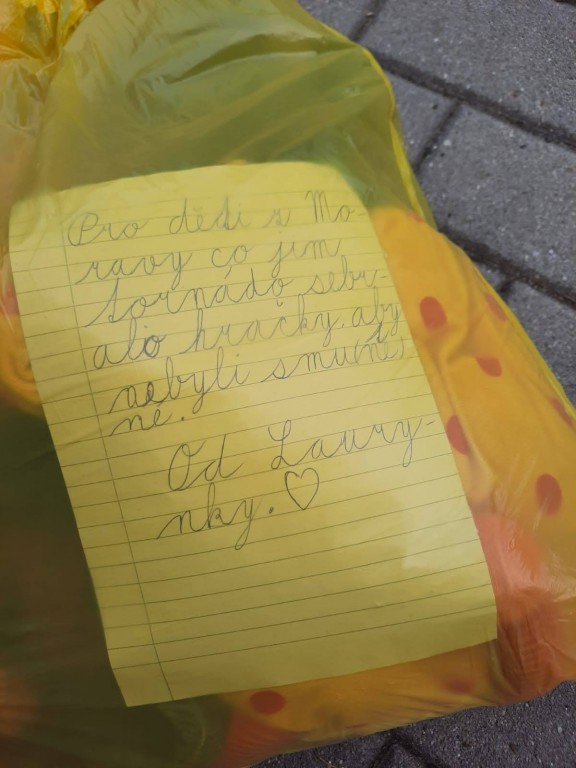 Pro dědi s Mo-
ravy co jim
tornádo sebr-
alo hračky, aby
nebyli smutné
né.
Od Laury-
nky. ♡